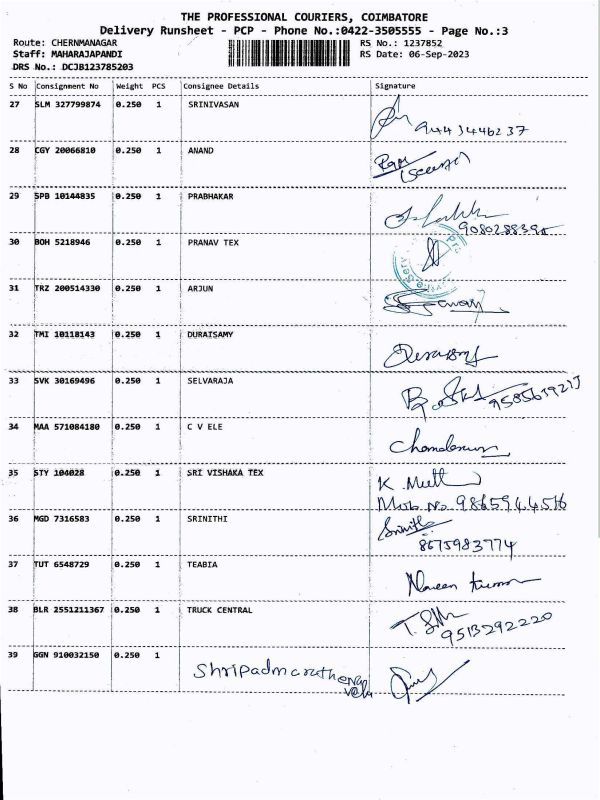 THE PROFESSIONAL COURIERS, COIMBATORE
Delivery Runsheet - PCP - Phone No.:0422-3505555 - Page No.:3
Route: CHERNMANAGAR RS No.: 1237852
Staff: MAHARAJAPANDI RS Date: 06-Sep-2023
DRS No.: DCJB123785203
S No Consignment No Weight PCS Consignee Details Signature
27 SLM 327799874 0.250 1 SRINIVASAN
9443446237
28 CGY 20066810 0.250 1 ANAND
29 SPB 10144835 0.250 1 PRABHAKAR
30 BOH 5218946 0.250 1 PRANAV TEX
31 TRZ 200514330 0.250 1 ARJUN
32 TMI 10118143 0.250 1 DURAISAMY
33 SVK 30169496 0.250 1 SELVARAJA
34 MAA 571084180 0.250 1 C V ELE
35 STY 104028 0.250 1 SRI VISHAKA TEX
Mob No 9865944516
36 MGD 7316583 0.250 1 SRINITHI Srinithi
8675983774
37 TUT 6548729 0.250 1 TEABIA Naveen Kumar
38 BLR 2551211367 0.250 1 TRUCK CENTRAL
9513292220
39 GGN 910032150 0.250 1